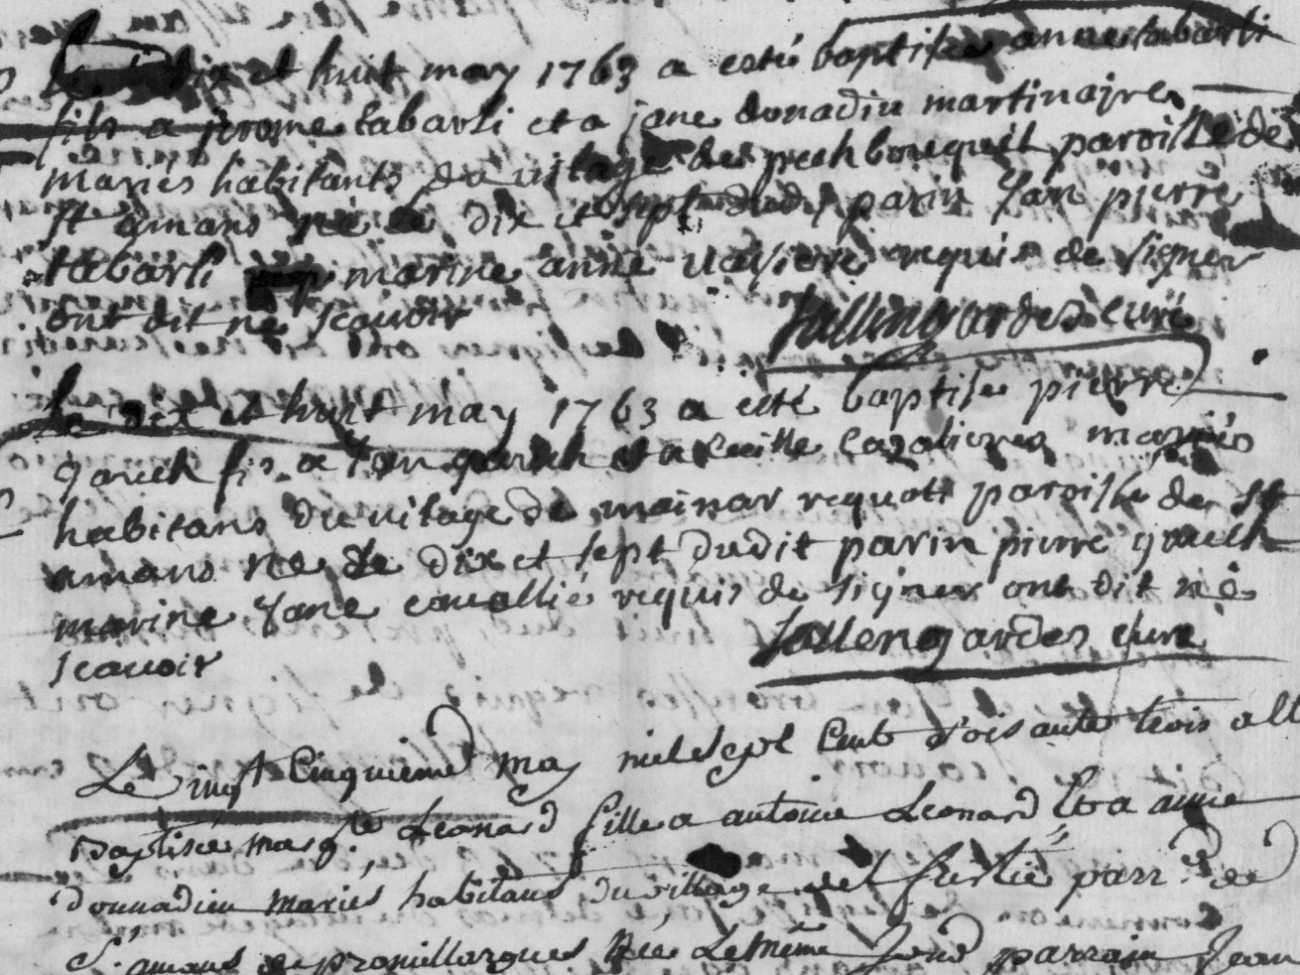 Le dix et huit may 1763 a esté baptisée anne tabarli
fils a jerome tabarli et a jane donadiu martinajre
mariés habitants du vilage de puech bouquet paroisse de
st amans née le dix et sept dudit parin jan pierre
tabarli marine anne requis de signer
ont dit ne scauoir
Jallengardes curé
Le dix et huit may 1763 a esté baptise pierre
gauch fis a jan gauch et a cecille cazalieres mariés
habitans du vilage de mainar paroisse de st
amans ne le dix et sept dudit parin pierre gauch
marine jane cauallié requis de signer ont dit ne
scauoir
Jallengardes cure
Le vingt Cinquieme may mil Sept Cent Soisante trois a été
Baptisée marg.te Leonard fille a antoine Leonard et a anne
donnadieu mariés habitans du village del parr. de
S.t amans de promillargues Née Le même jour parrain Jean